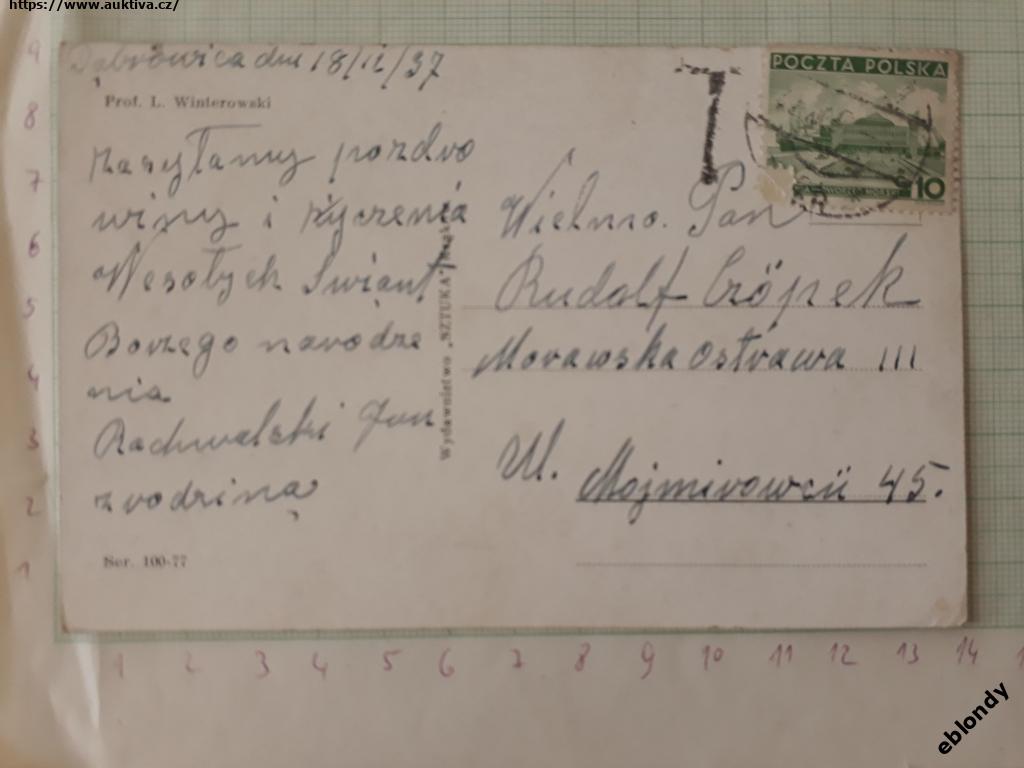 https://www.auktiva.cz/
Dąbrowica dnia 18/12/37
Prof. L. Winterowski
Zasyłamy pozdro
winy i rzyczenia
Wesołych Swiąnt
Borzego narodze
nia
Radwalski Jan
z rodziną
Ser. 100-77
Wydawnictwo „SZTUKA"
T
POCZTA POLSKA
10
Wielmo. Pan
Rudolf Czöpek
Morawska Ostrawa III
Ul. Mojmirowcü 45.
9
8
7
6
5
4
3
2
1
1 2 3 4 5 6 7 8 9 10 11 12 13 14
eblondy